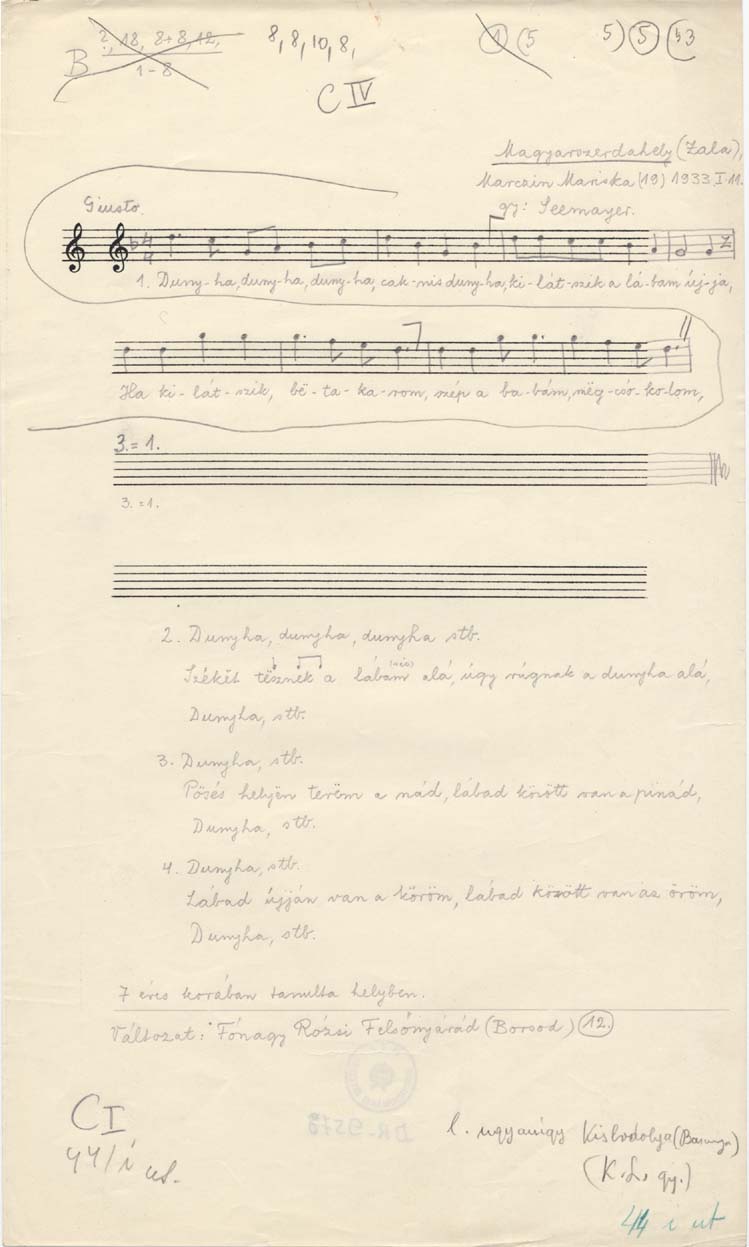 B 2, 18, 8+8, 12,
1-8
8, 8, 10, 8,
1 (5
5) 5 (b3
C IV
Magyarszerdahely (Zala),
Marczin Mariska (19) 1933 I. 11.
gy: Seemayer.
Giusto.
1. Duny-ha, duny-ha, duny-ha, cak-nis dunyha, ki-lát-szik a lá-bam új-ja,
Ha ki-lát-szik, bë-ta-ka-rom, szép a ba-bám, mëg-csó-ko-lom,
3. = 1.
3. = 1.
2. Dunyha, dunyha, dunyha stb.
Székët tësznek a lábam alá, úgy rúgnak a dunyha alá,
Dunyha, stb.
3. Dunyha, stb.
Pösés helyjën terëm a nád, lábad között van a pinád,
Dunyha, stb.
4. Dunyha, stb.
Lábad újján van a köröm, lábad között van az öröm,
Dunyha, stb.
7 éves korában tanulta helyben.
Változat: Fónagy Rózsi Felsőnyárád (Borsod) 12.
C I
44/i ut.
l. ugyanígy Kisbodolya (Baranya)
(K. L. gy.)
44 i ut